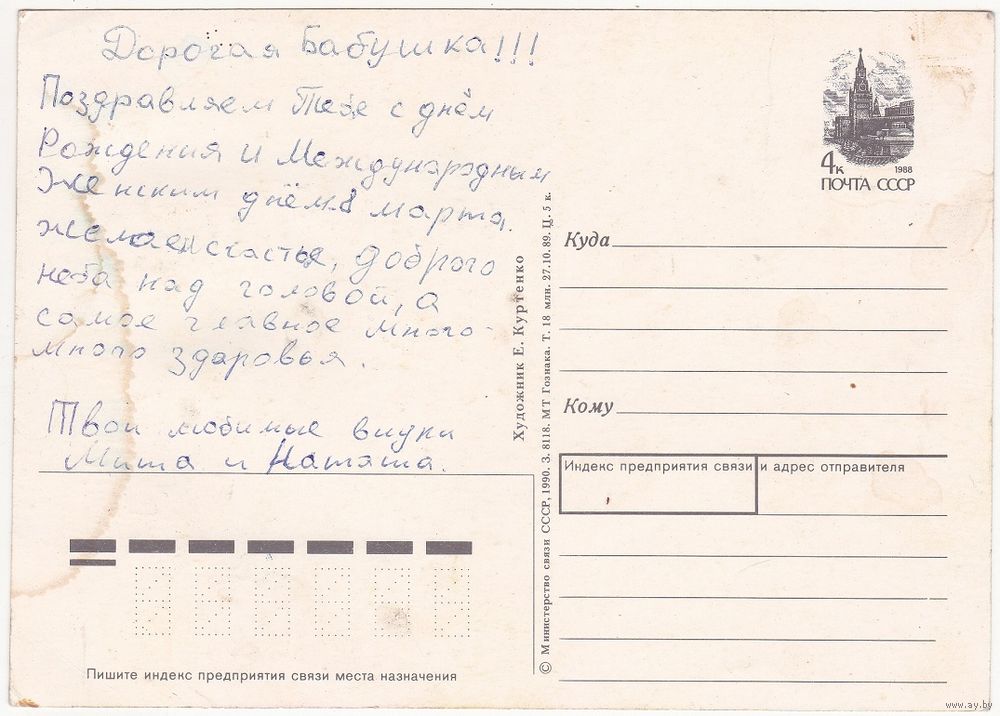 Дорогая Бабушка!!!
Поздравляем Тебя с днём
Рождения и Международным
Женским днём 8 марта.
желаем счастья, доброго
неба над головой, а
самое главное много-
много здоровья.
Твои любимые внуки
Миша и Наташа.
Пишите индекс предприятия связи места назначения
Художник Е. Куртенко
© Министерство связи СССР, 1990. З. 8118. МТ Гознака. Т. 18 млн. 27.10.89. Ц. 5 к.
4к
1988
ПОЧТА СССР
Куда
Кому
Индекс предприятия связи и адрес отправителя
www.ay.by